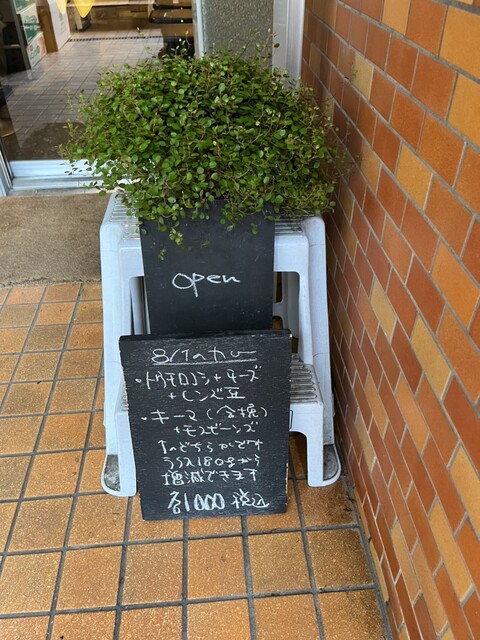 open
8/1のカレー
・トウモロコシ+チーズ
+レンズ豆
・キーマ(合挽)
+モスビーンズ
のどちらかです
ライス180gから
増減できます
各1000 税込